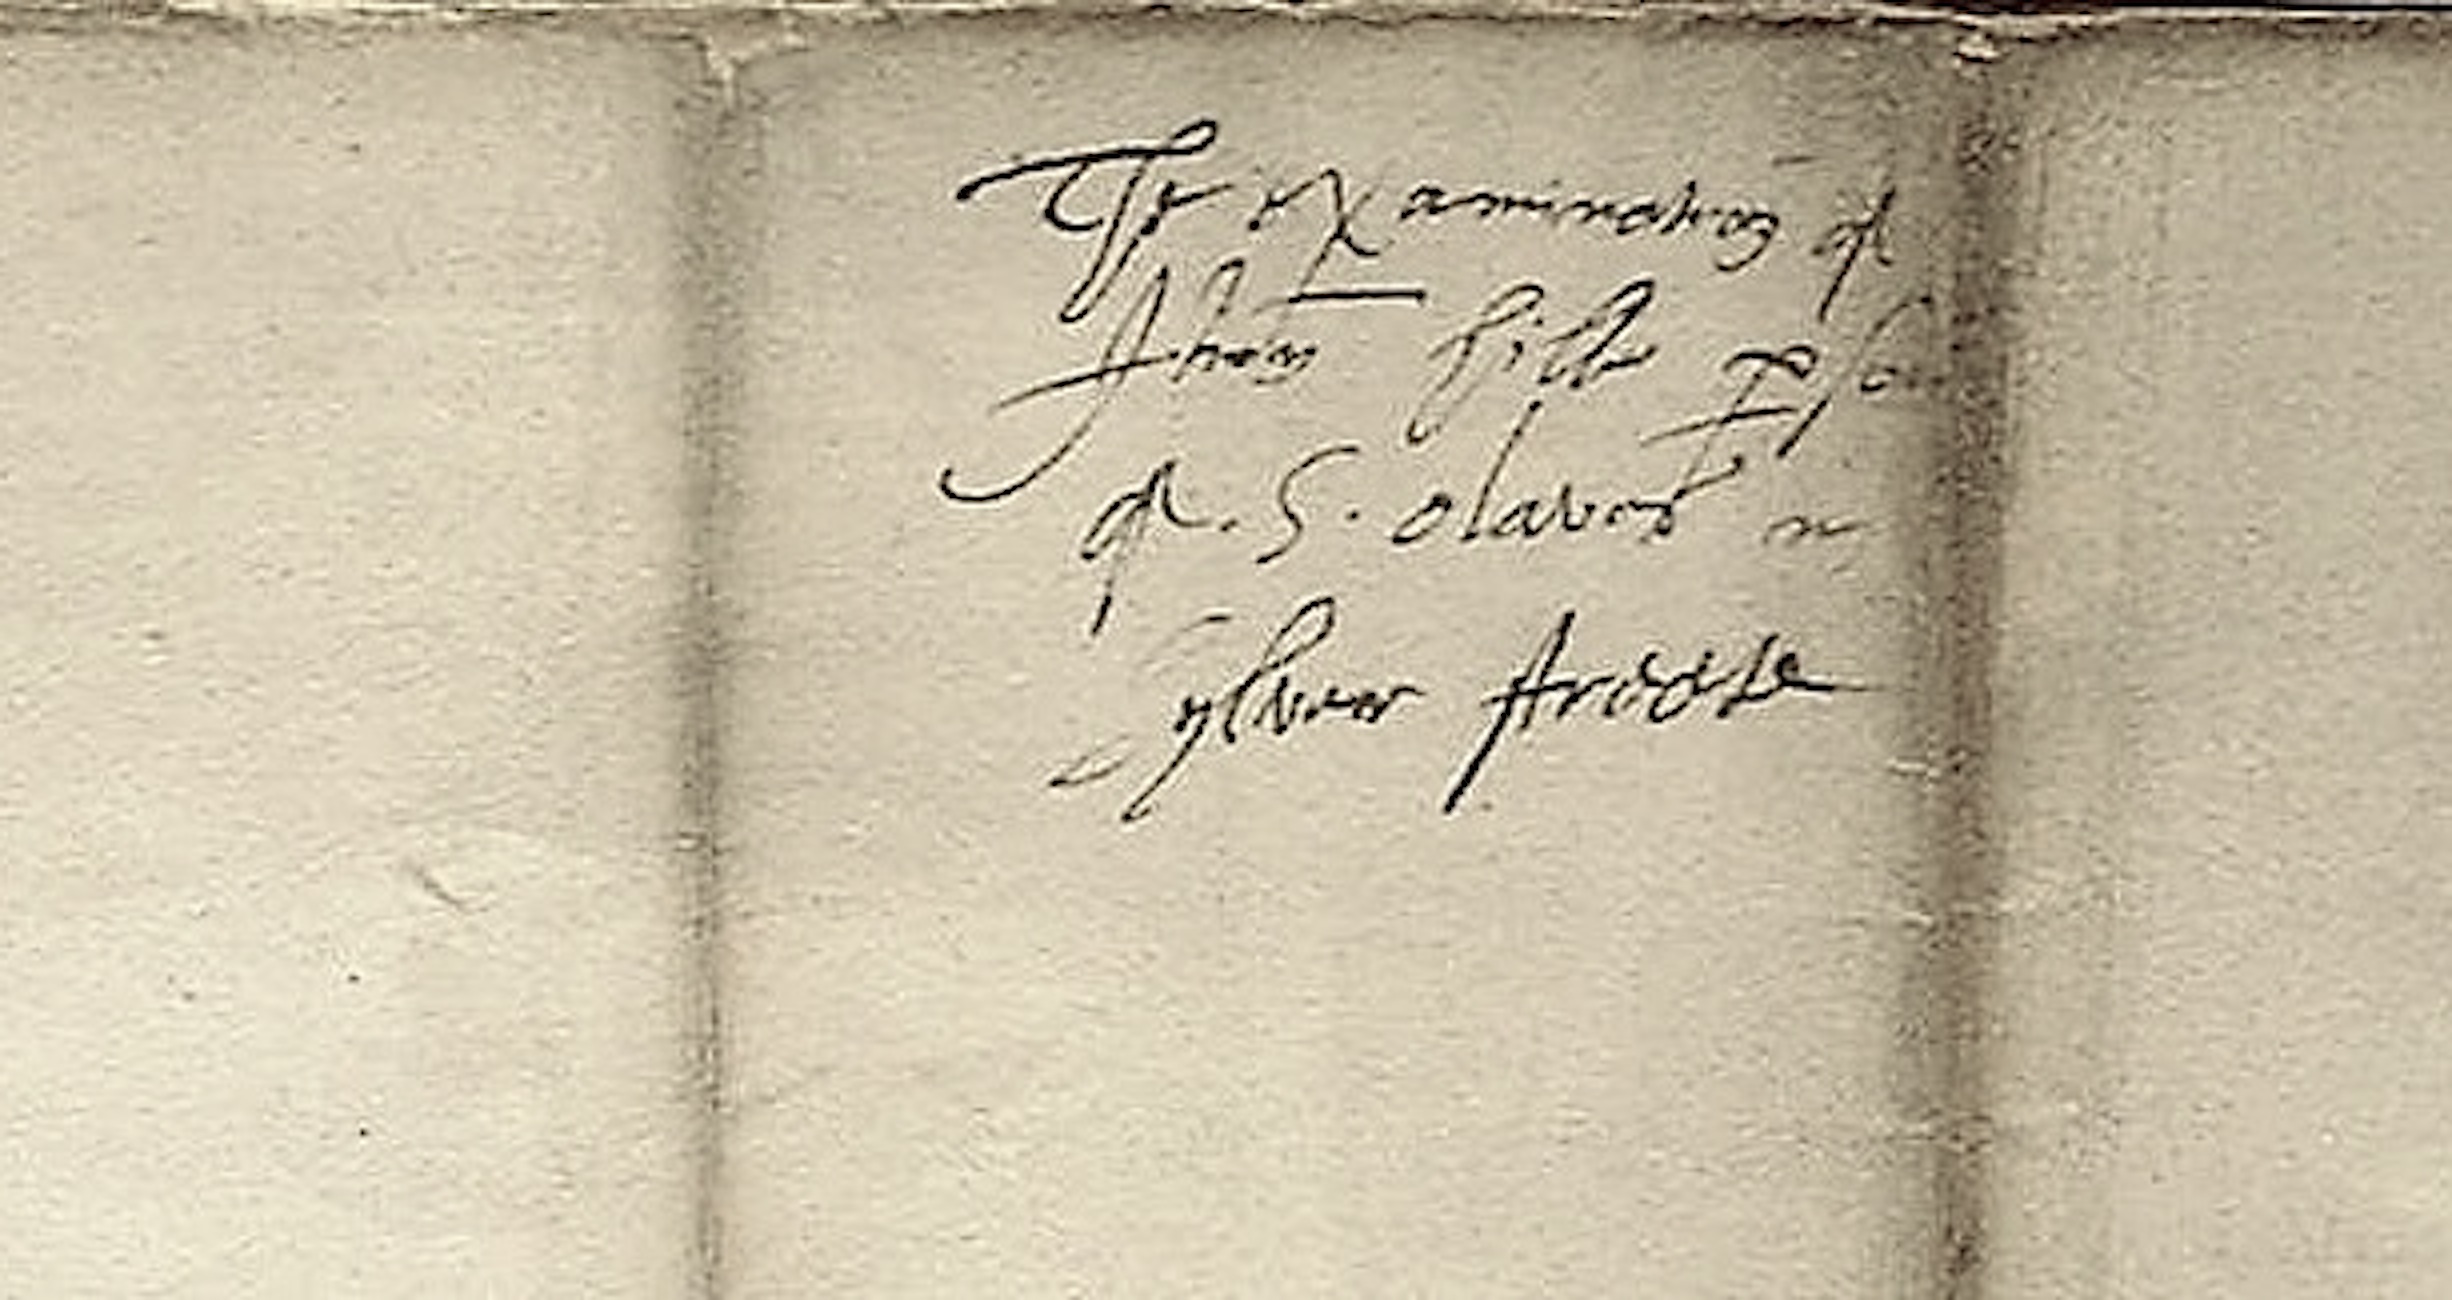 The examination of
Jhon hill pson
of . S. olaves in
sylver strete